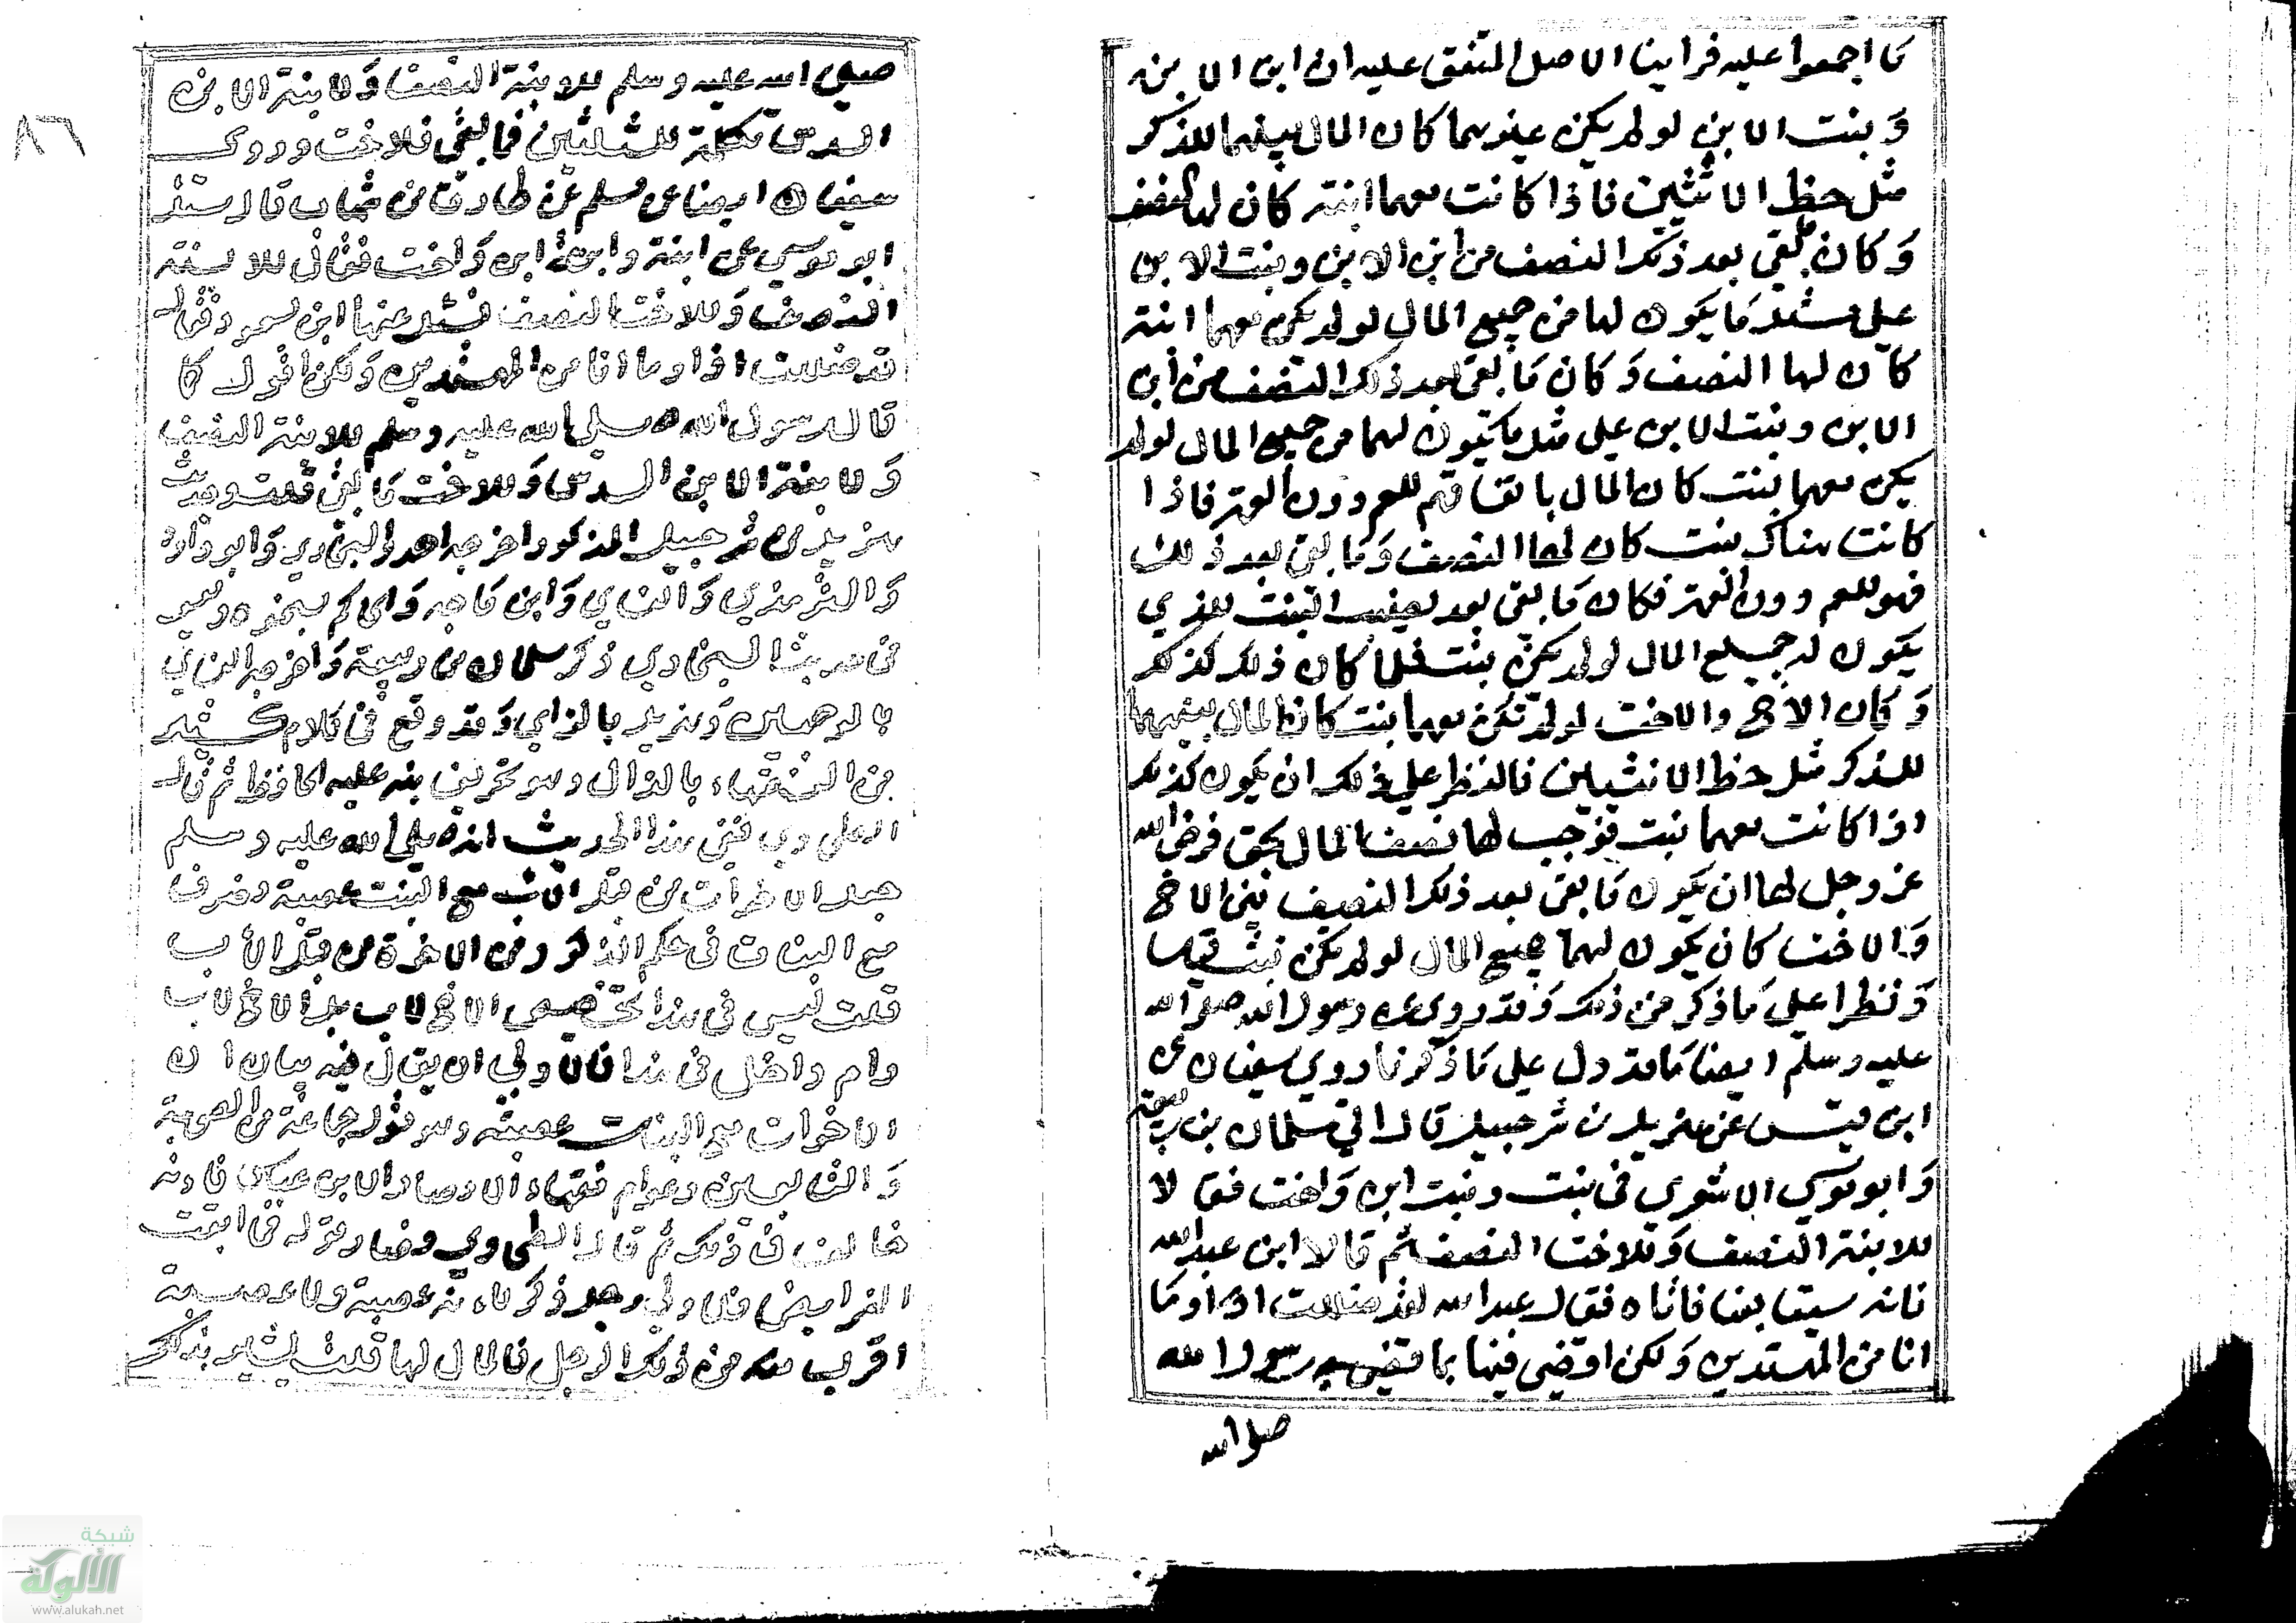 ما اجمعوا عليه فراينا الاصل المتفق عليه ان ابن الابن
وبنت الابن لو لم يكن غيرهما كان المال بينهما للذكر
مثل حظ الانثيين فاذا كانت معهما ابنة كان لها النصف
وكان ما بقى بعد ذلك النصف من ابن الابن وبنت الابن
على مثل ما يكون لهما من جميع المال لو لم يكن معهما ابنة
كان لها النصف وكان ما بقى بعد ذلك النصف من ابن
الابن وبنت الابن على مثل ما يكون لهما من جميع المال لو لم
يكن معهما بنت كان المال باتفاقهم للعم دون العمة فاذا
كانت هناك بنت كان لها النصف وما بقى بعد ذلك
فهو للعم دون العمة فكان ما بقى بعد نصيب البنت للذي
يكون له جميع المال لو لم يكن بنت فلما كان ذلك كذلك
وكان الاخ والاخت لو لم تكن معهما بنت كان المال بينهما
للذكر مثل حظ الانثيين فالنظر على ذلك ان يكون كذلك
اذا كانت معهما بنت فوجب لها نصف المال بحق فرض الله
عز وجل لها ان يكون ما بقى بعد ذلك النصف بين الاخ
والاخت كان يكون لهما جميع المال لو لم يكن بنت قياسا
ونظرا على ما ذكر من ذلك وقد روى عن رسول الله صلى الله
عليه وسلم ايضا ما قد دل على ما ذكرنا روى سفيان عن
ابن قيس عن هزيل بن شرحبيل قال اتي سلمان بن ربيعة
وابو موسى الاشعري فى بنت وبنت ابن واخت فقالا
للابنة النصف وللاخت النصف ثم قالا ابن عبد الله
فانه سيتابعنا فاتاه فقال عبد الله لقد ضللت اذا وما
انا من المهتدين ولكن اقضي فيها بما قضى به رسول الله
صلى الله
٨٦
صلى الله عليه وسلم للابنة النصف ولابنة الابن
السدس تكملة للثلثين فما بقى فللاخت وروى
سفيان ايضا عن مسلم عن طارق بن شهاب قال سئل
ابو موسى عن ابنة وابنة ابن واخت فقال للابنة
النصف وللاخت النصف فسئل عنها ابن مسعود فقال
قد ضللت اذا وما انا من المهتدين ولكن اقول كما
قال رسول الله صلى الله عليه وسلم للابنة النصف
ولابنة الابن السدس وللاخت ما بقى قلت وحديث
هزيل بن شرحبيل المذكور اخرجه احمد والبخاري وابو داود
والترمذي والنسائي وابن ماجه والحاكم بنحوه وليس
فى حديث البخاري ذكر سلمان بن ربيعة واخرجه النسائي
بالوجهين وهزيل بالزاي وقد وقع فى كلام كثير
من الفقهاء بالذال وهو تحريف نبه عليه الحافظ ثم قال
الطحاوي ففى هذا الحديث انه صلى الله عليه وسلم
جعل الاخوات من قبل الاب مع البنت عصبة فصرف
مع البنات فى حكم الذكور من الاخوة من قبل الاب
قلت ليس فى هذا تخصيص الاخ لاب بل الاخ لاب
وام داخل فى هذا فالاولى ان يقال فيه بيان ان
الاخوات مع البنات عصبة وهو قول جماعة من الصحابة
والتابعين وعوام فقهاء الامصار الا ابن عباس فانه
خالف فى ذلك ثم قال الطحاوي وصار قوله فما ابقت
الفرايض فلاولى رجل ذكر لانه عصبة ولا عصبة
اقرب منه من ذلك الرجل فالمال لها قلت يشير بذلك
شبكة
الألوكة
www.alukah.net